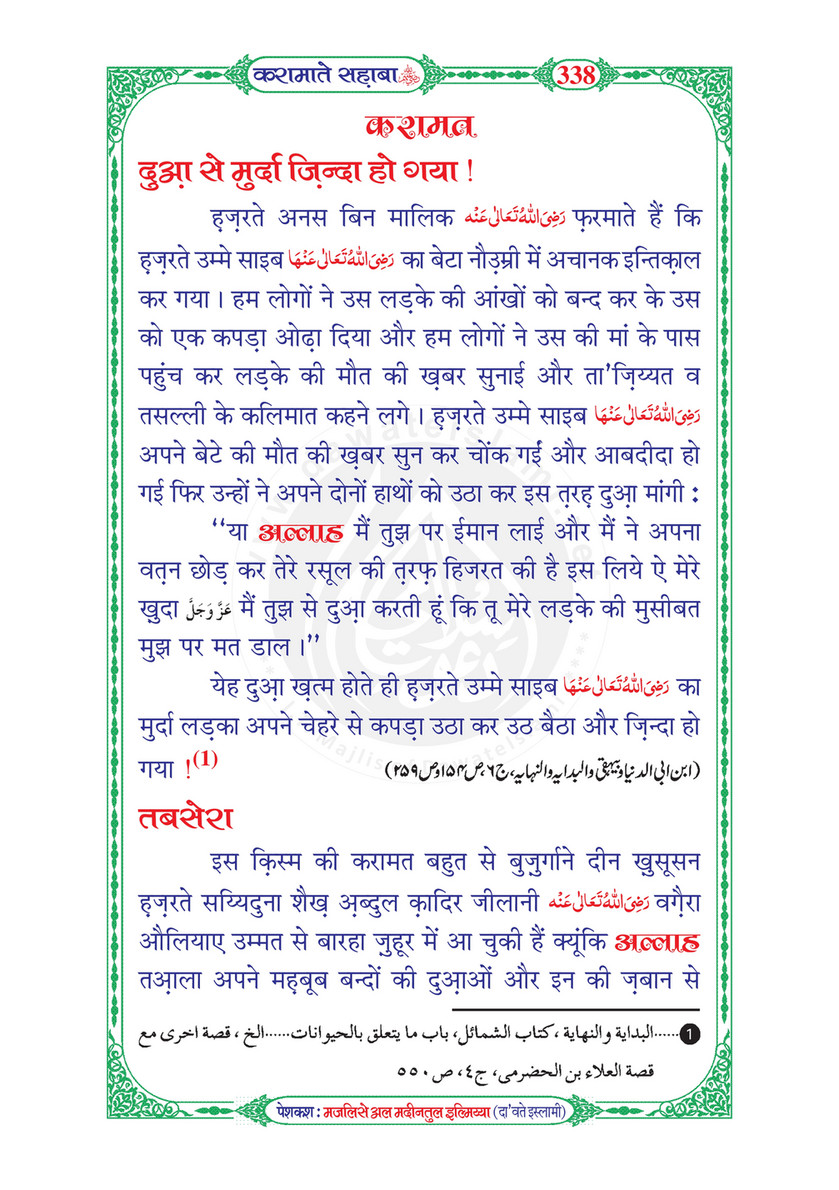 करामाते सह़ाबा
338
करामत
दुआ़ से मुर्दा ज़िन्दा हो गया !
ह़ज़रते अनस बिन मालिक رَضِیَ اللّٰهُ تَعَالٰی عَنْه फ़रमाते हैं कि
ह़ज़रते उम्मे साइब رَضِیَ اللّٰهُ تَعَالٰی عَنْهَا का बेटा नौउ़म्री में अचानक इन्तिक़ाल
कर गया । हम लोगों ने उस लड़के की आंखों को बन्द कर के उस
को एक कपड़ा ओढ़ा दिया और हम लोगों ने उस की मां के पास
पहुंच कर लड़के की मौत की ख़बर सुनाई और ता'ज़िय्यत व
तसल्ली के कलिमात कहने लगे । ह़ज़रते उम्मे साइब رَضِیَ اللّٰهُ تَعَالٰی عَنْهَا
अपने बेटे की मौत की ख़बर सुन कर चोंक गईं और आबदीदा हो
गई फिर उन्हों ने अपने दोनों हाथों को उठा कर इस त़रह़ दुआ़ मांगी :
‘‘या अल्लाह मैं तुझ पर ईमान लाई और मैं ने अपना
वत़न छोड़ कर तेरे रसूल की त़रफ़ हिजरत की है इस लिये ऐ मेरे
ख़ुदा عَزَّوَجَلَّ मैं तुझ से दुआ़ करती हूं कि तू मेरे लड़के की मुसीबत
मुझ पर मत डाल ।’’
येह दुआ़ ख़त्म होते ही ह़ज़रते उम्मे साइब رَضِیَ اللّٰهُ تَعَالٰی عَنْهَا का
मुर्दा लड़का अपने चेहरे से कपड़ा उठा कर उठ बैठा और ज़िन्दा हो
गया !(1) (ابن ابی الدنیا و بیہقی والبدایہ والنہایہ، ج۶، ص۱۵۴ و ص۲۵۹)
तबसेरा
इस क़िस्म की करामत बहुत से बुज़ुर्गाने दीन ख़ुसूसन
ह़ज़रते सय्यिदुना शैख़ अ़ब्दुल क़ादिर जीलानी رَضِیَ اللّٰهُ تَعَالٰی عَنْه वग़ैरा
औलियाए उम्मत से बारहा ज़ुहूर में आ चुकी हैं क्यूंकि अल्लाह
तआ़ला अपने मह़बूब बन्दों की दुआ़ओं और इन की ज़बान से
1......البداية والنهاية ،كتاب الشمائل، باب ما يتعلق بالحيوانات......الخ ، قصة اخرى مع
قصة العلاء بن الحضرمى، ج٤، ص ٥٥٠
पेशकश : मजलिसे अल मदीनतुल इ़ल्मिय्या (दा'वते इस्लामी)